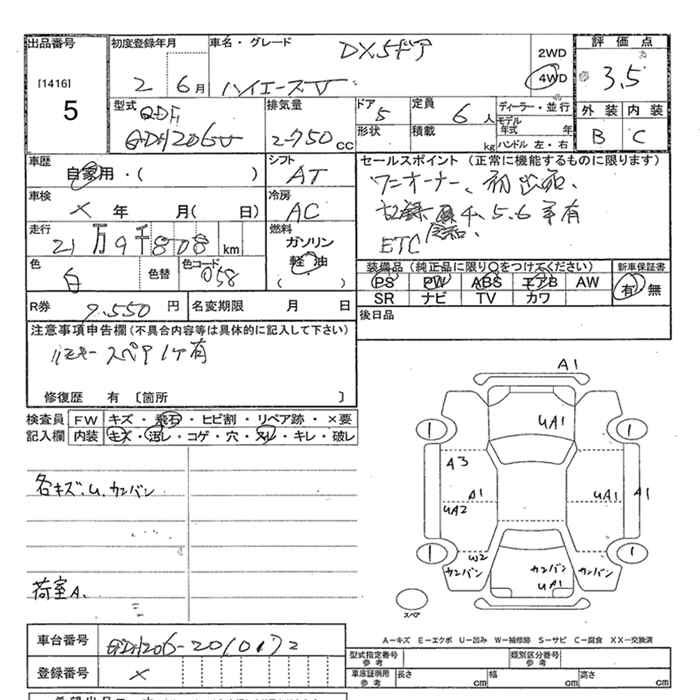 出品番号 [1416] 5
初度登録年月 2 6月
車名・グレード DX5ドア ハイエースV
2WD 4WD
評価点 3.5
外装 B 内装 C
型式 QDF GDH206V
排気量 2750CC
ドア 5 形状
定員 6人 積載 kg
ディーラー・並行
モデル年式 年
ハンドル 左・右
車歴 自家用・( )
シフト AT
車検 × 年 月(日)
冷房 AC
走行 21万9千808km
燃料 ガソリン 軽油 ( )
色 白 色替 色コード 058
R券 9,550円 名変期限 月 日
セールスポイント(正常に機能するものに限ります)
ワンオーナー、初出品、
記録 4、5.6年有
ETC
装備品(純正品に限り○をつけてください) 新車保証書
PS PW ABS エアB AW 有・無
SR ナビ TV カワ
後日品
注意事項申告欄(不具合内容等は具体的に記入して下さい)
リモキースペア1ケ有
修復歴 有〔箇所 〕
検査員 FW キズ・飛石・ヒビ割・リペア跡・×要
記入欄 内装 キズ・汚レ・コゲ・穴・スレ・キレ・破レ
各キズ.U.カンバン
荷室A.
A1
UA1
1 1
A3
A1 UA1 A1
UA2
1 W2 1
カンバン カンバン カンバン
UA1
スペア
A-キズ E-エクボ U-凹み W-補修跡 S-サビ C-腐食 XX-交換済
車台番号 GDH206-2010172
登録番号 ×
型式指定番号 参考 類別区分番号 参考
車庫証明用 参考 長さ cm 幅 cm 高さ cm